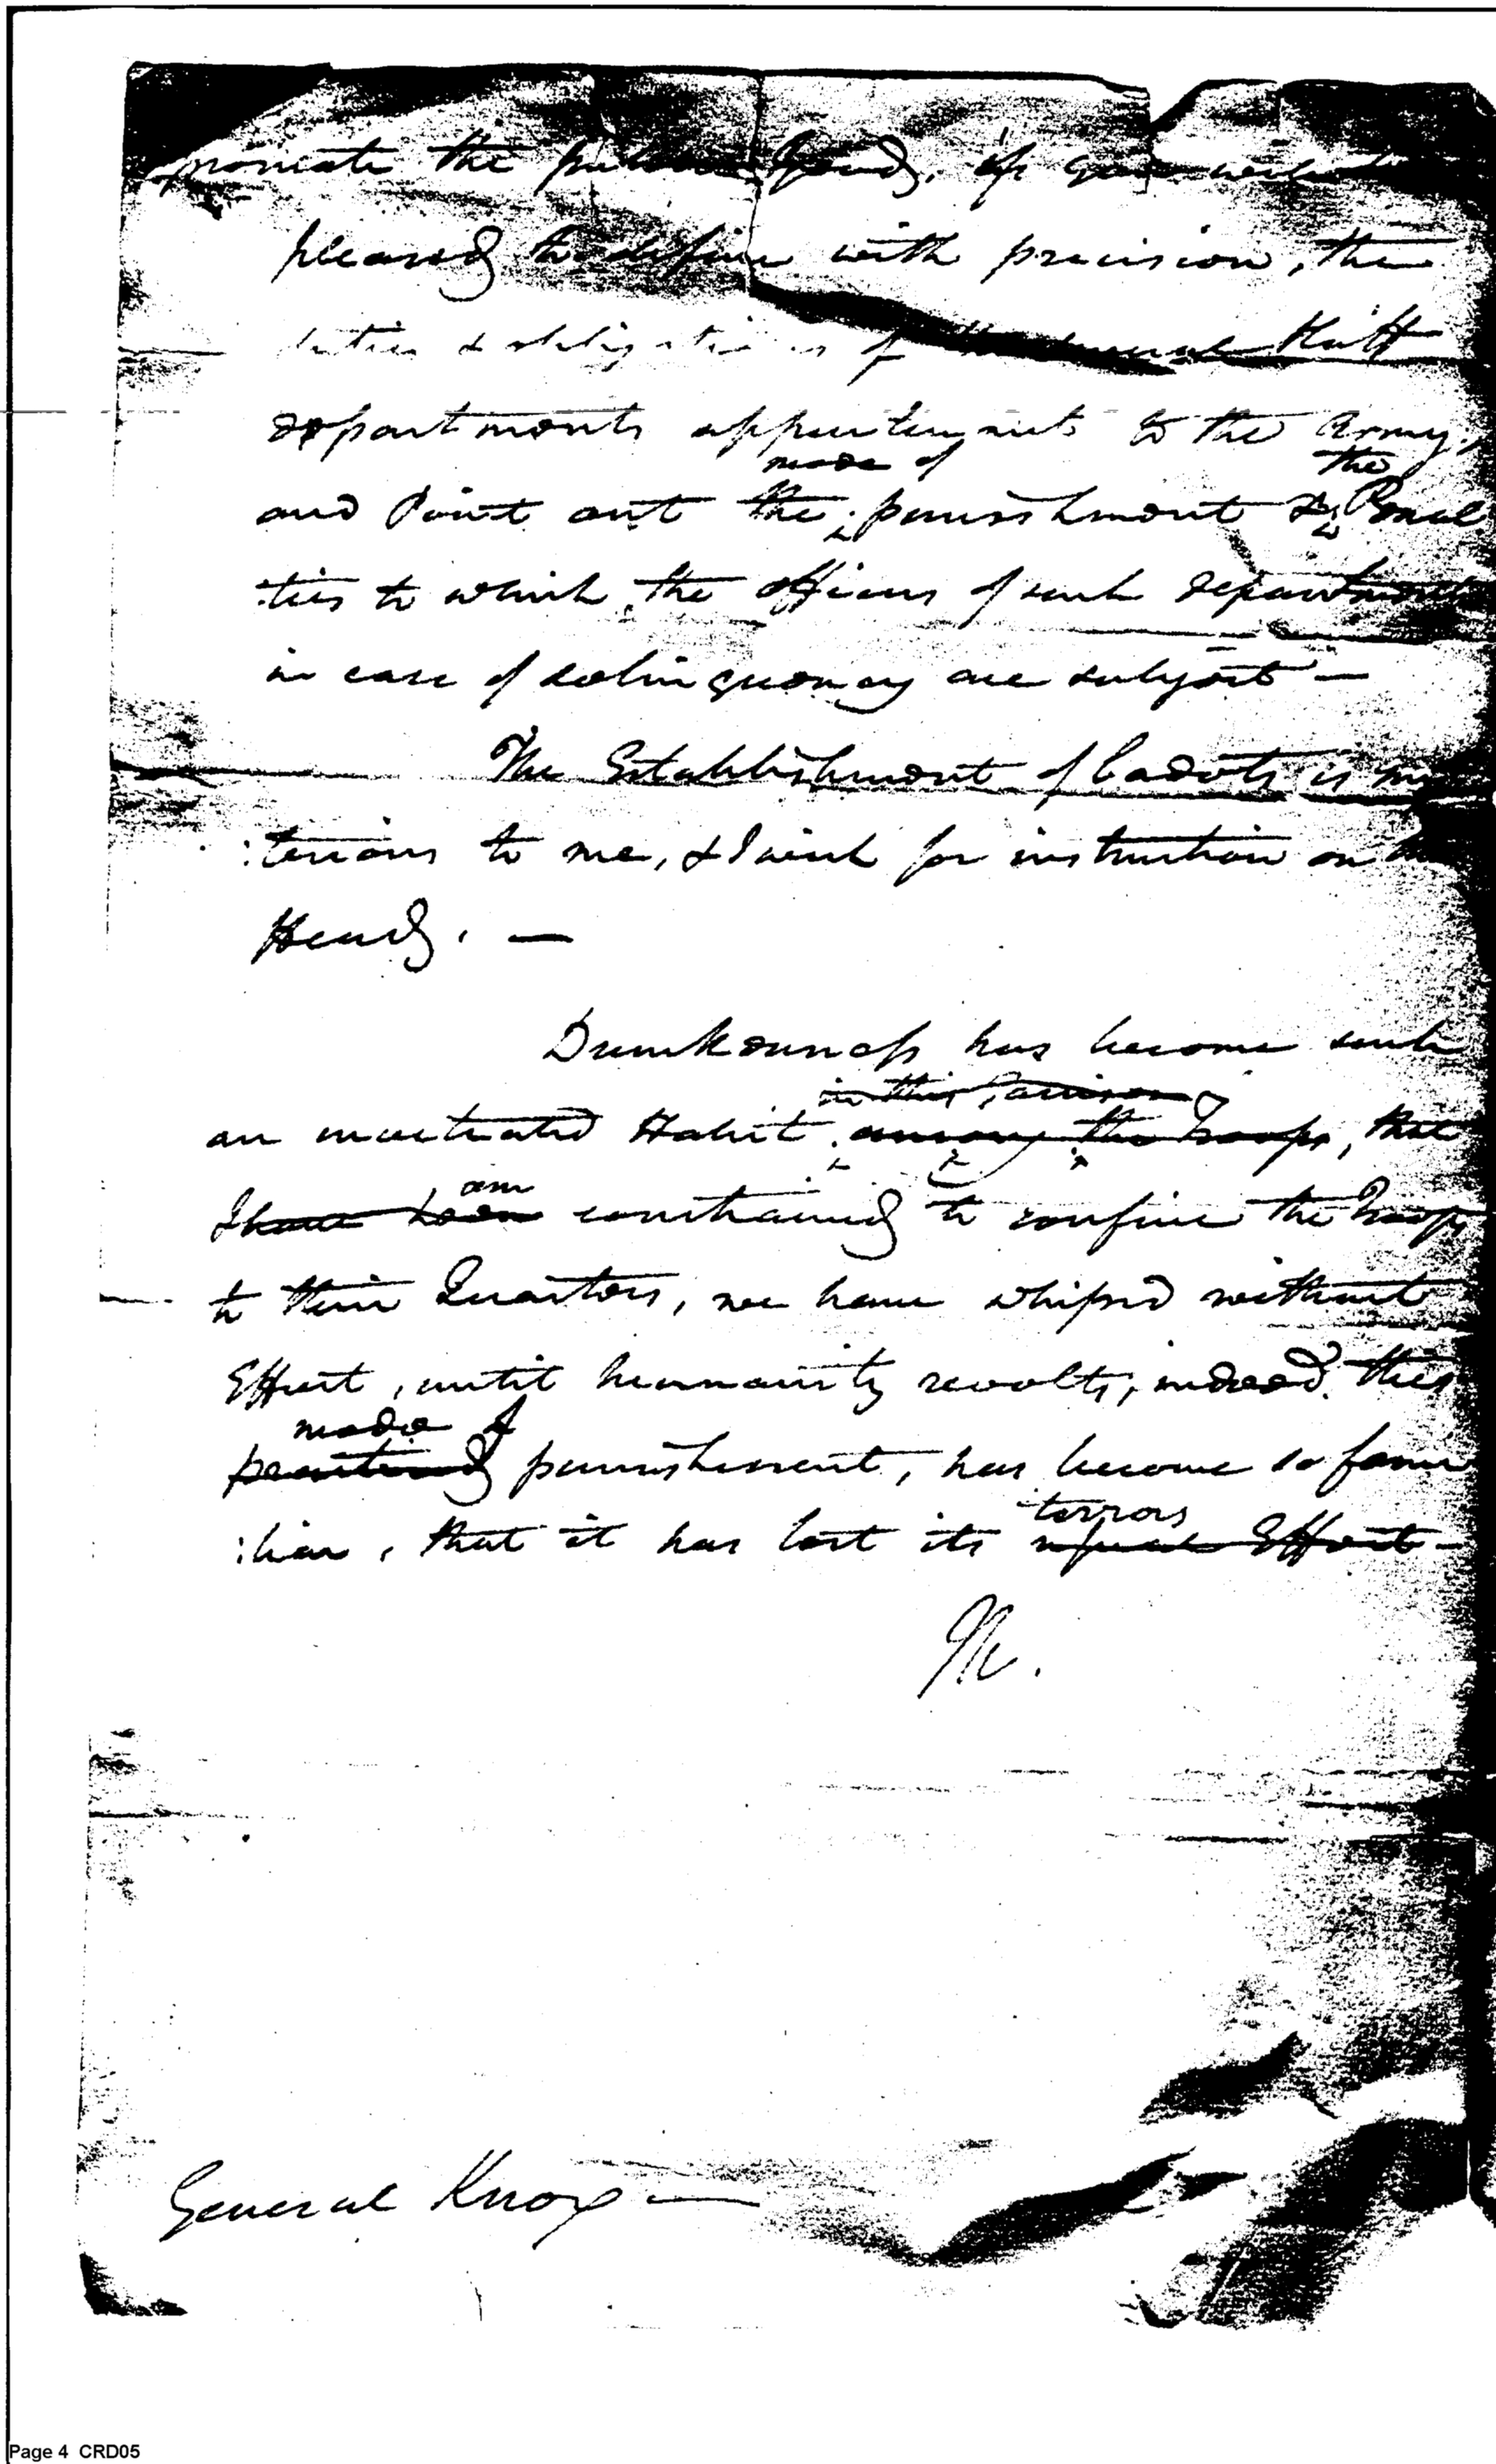 promote the public Good, if you will be
pleased to define with precision, the
duties & obligations of the several Staff
departments appurtenant to the Army,
mode of the
and Point out the punishment & Penal
:ties to which the officers of such department
in case of delinquency are subject —
The Establishment of Cadets is mys
:terious to me, & I wish for instruction on the
Head. —
Drunkenness has become such
in this Garrison
an inveterated Habit among the Troops, that
am
I have been constrained to confine the Troops
to their Quarters, we have whiped without
Effect, until humanity revolts, indeed this
mode of
practised punishment, has become so fami
:liar, that it has lost its
terrors
usual Effect —
W.
General Knox —
Page 4 CRD05